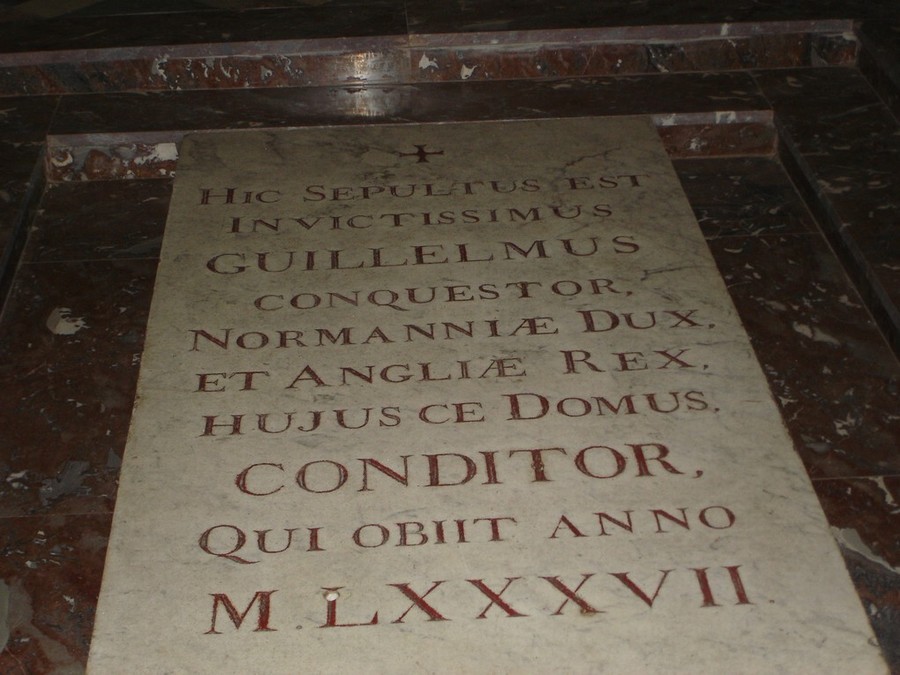 HIC SEPULTUS EST
INVICTISSIMUS
GUILLELMUS
CONQUESTOR,
NORMANNIÆ DUX,
ET ANGLIÆ REX,
HUJUS CE DOMUS,
CONDITOR,
QUI OBIIT ANNO
M.LXXXVII.